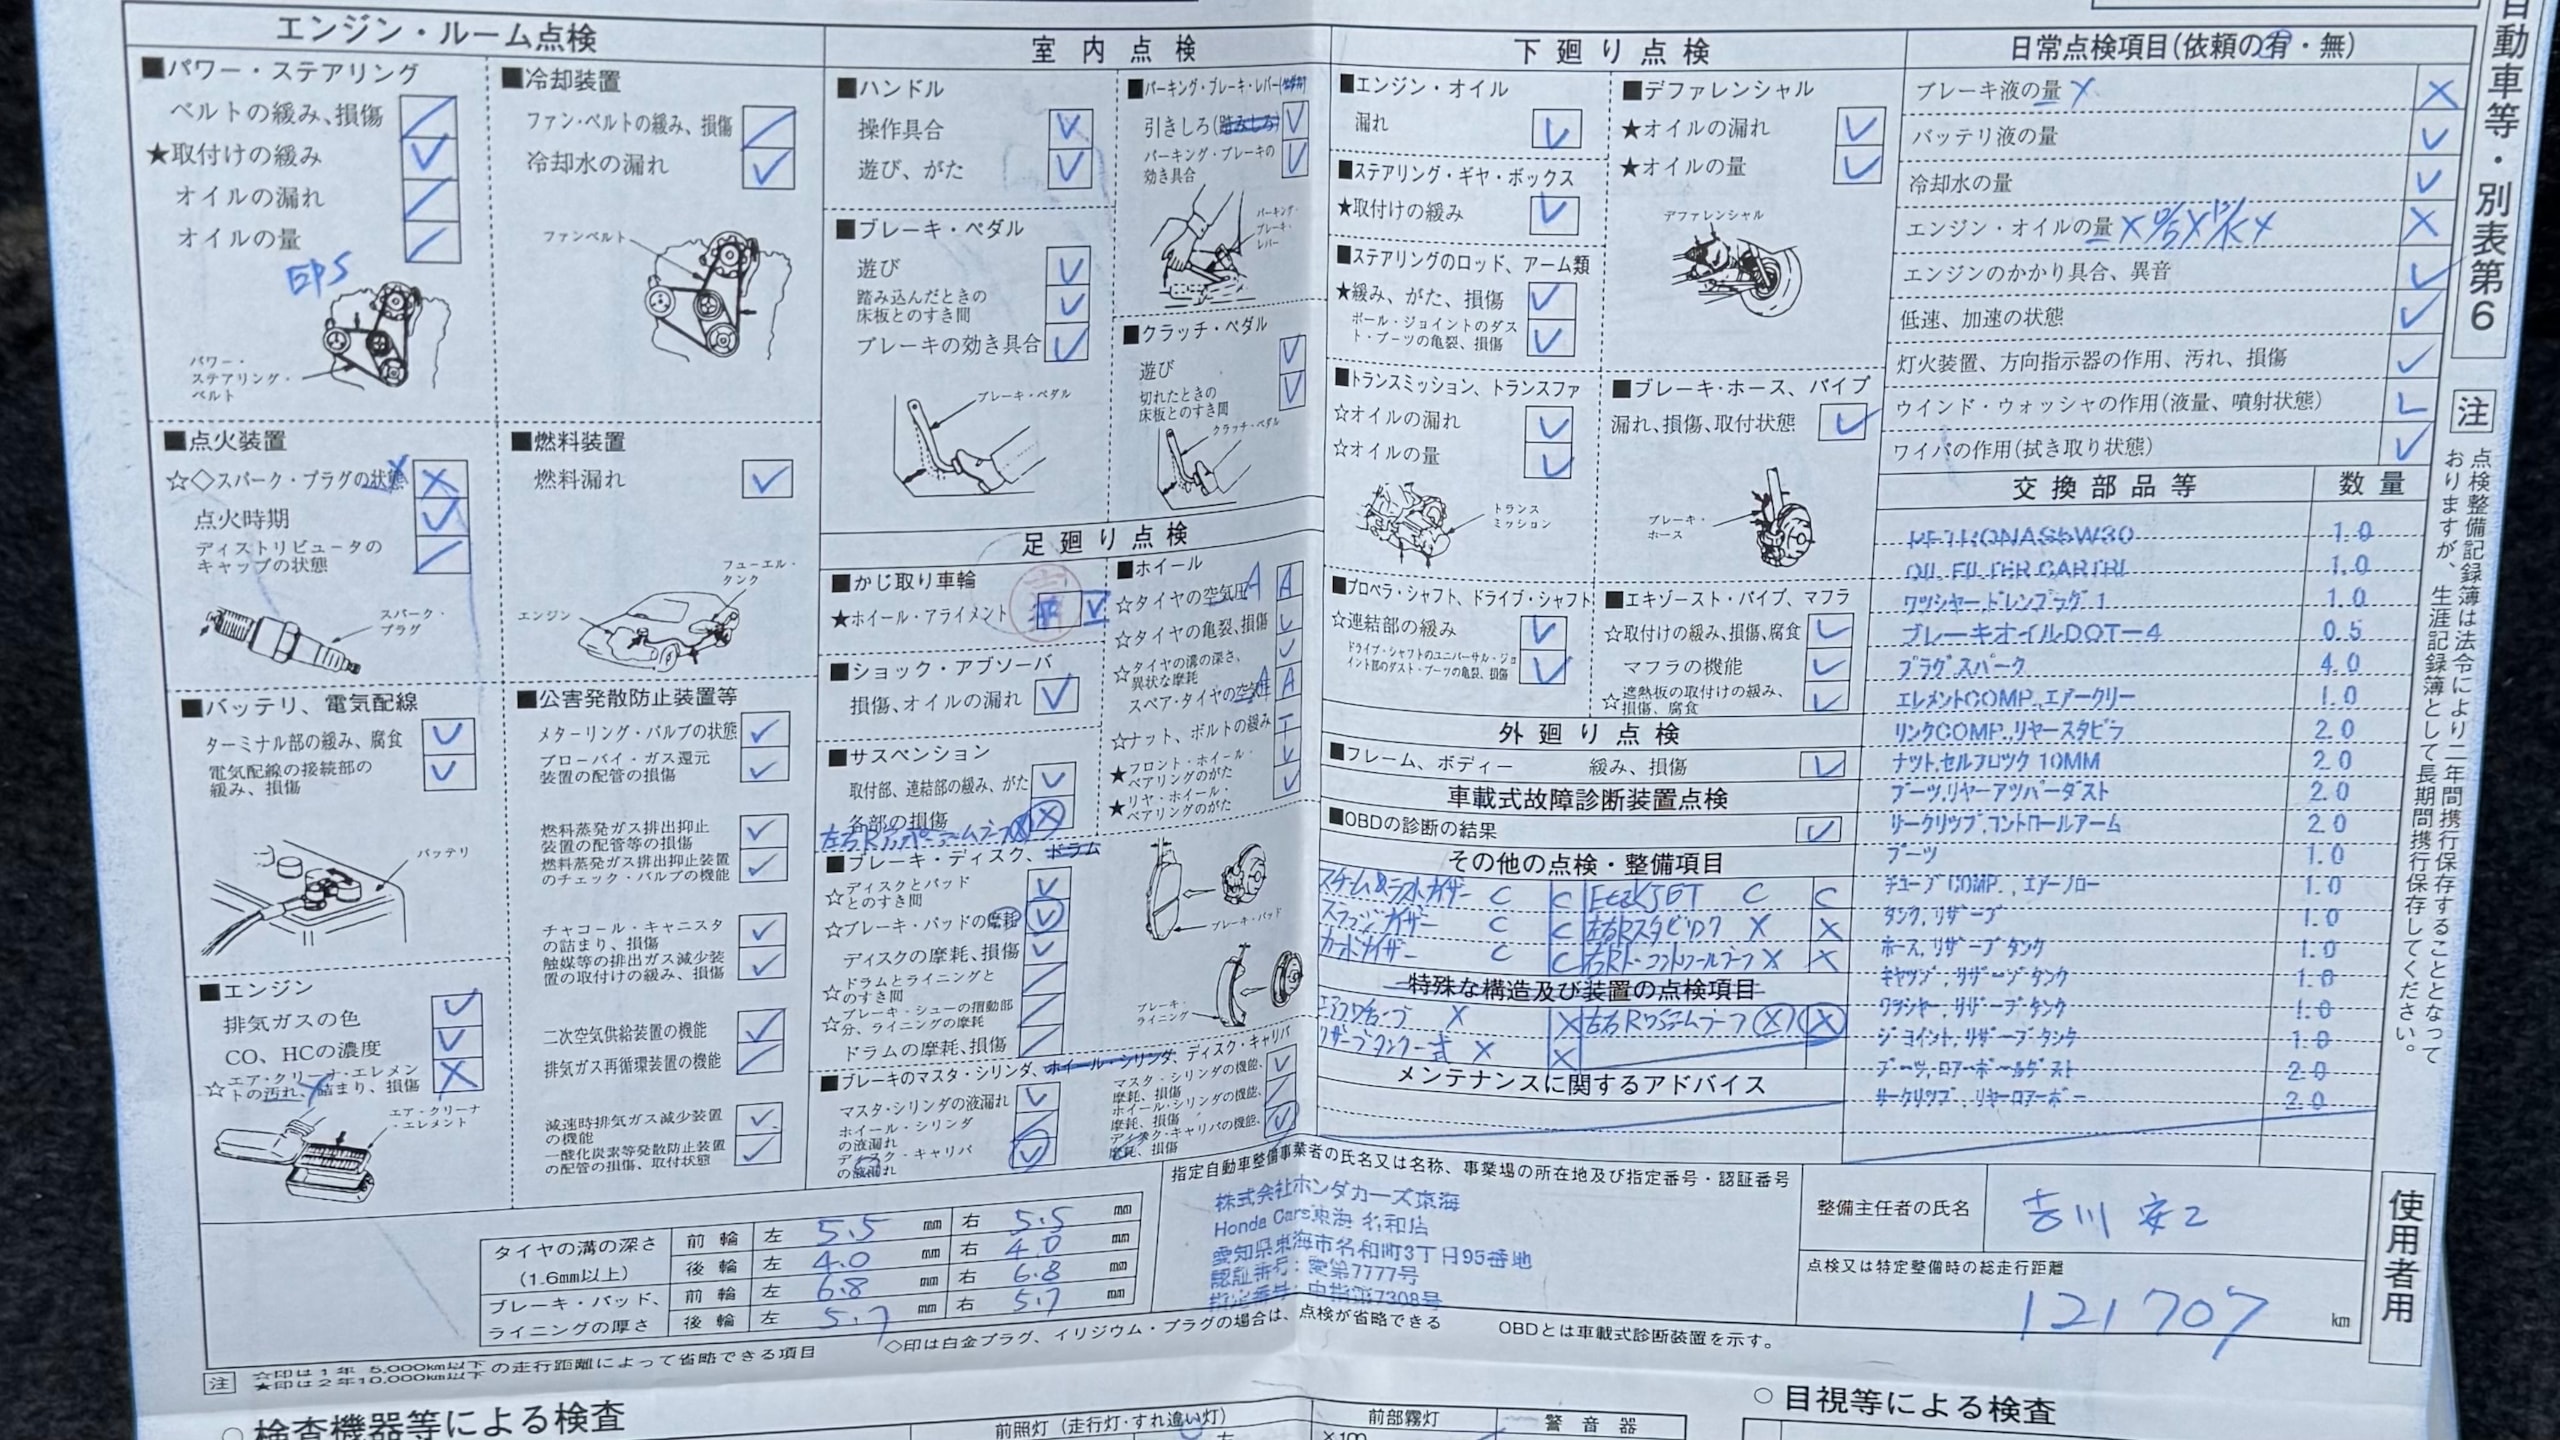 自動車等・別表第6
エンジン・ルーム点検
■パワー・ステアリング
ベルトの緩み、損傷
★取付けの緩み
オイルの漏れ
オイルの量
EPS
パワー・
ステアリング・
ベルト
■冷却装置
ファン・ベルトの緩み、損傷
冷却水の漏れ
ファンベルト
■点火装置
☆◇スパーク・プラグの状態
点火時期
ディストリビュータの
キャップの状態
スパーク・
プラグ
■燃料装置
燃料漏れ
フューエル・
タンク
エンジン
■バッテリ、電気配線
ターミナル部の緩み、腐食
電気配線の接続部の
緩み、損傷
バッテリ
■公害発散防止装置等
メターリング・バルブの状態
ブローバイ・ガス還元
装置の配管の損傷
燃料蒸発ガス排出抑止
装置の配管等の損傷
燃料蒸発ガス排出抑止装置
のチェック・バルブの機能
チャコール・キャニスタ
の詰まり、損傷
触媒等の排出ガス減少装
置の取付けの緩み、損傷
二次空気供給装置の機能
排気ガス再循環装置の機能
減速時排気ガス減少装置
の機能
一酸化炭素等発散防止装置
の配管の損傷、取付状態
■エンジン
排気ガスの色
CO、HCの濃度
☆エア・クリーナ・エレメン
トの汚れ、詰まり、損傷
エア・クリーナ
・エレメント
室内点検
■ハンドル
操作具合
遊び、がた
■ブレーキ・ペダル
遊び
踏み込んだときの
床板とのすき間
ブレーキの効き具合
ブレーキ・ペダル
■パーキング・ブレーキ・レバー
引きしろ(踏みしろ)
パーキング・ブレーキの
効き具合
パーキング・
ブレーキ・
レバー
■クラッチ・ペダル
遊び
切れたときの
床板とのすき間
クラッチ・ペダル
足廻り点検
■かじ取り車輪
★ホイール・アライメント
■ショック・アブソーバ
損傷、オイルの漏れ
■サスペンション
取付部、連結部の緩み、がた
各部の損傷
■ブレーキ・ディスク、ドラム
☆ディスクとパッド
とのすき間
☆ブレーキ・パッドの摩耗
ディスクの摩耗、損傷
☆ドラムとライニングと
のすき間
☆ブレーキ・シューの摺動部
分、ライニングの摩耗
ドラムの摩耗、損傷
■ホイール
☆タイヤの空気圧 A A
☆タイヤの亀裂、損傷
☆タイヤの溝の深さ、
異状な摩耗
スペア・タイヤの空気圧 A A
☆ナット、ボルトの緩み T
★フロント・ホイール・
ベアリングのがた
★リヤ・ホイール・
ベアリングのがた
ブレーキ・パッド
ブレーキ・
ライニング
■ブレーキのマスタ・シリンダ、ホイール・シリンダ、ディスク・キャリパ
マスタ・シリンダの液漏れ
ホイール・シリンダ
の液漏れ
ディスク・キャリパ
の液漏れ
マスタ・シリンダの機能、
摩耗、損傷
ホイール・シリンダの機能、
摩耗、損傷
ディスク・キャリパの機能、
摩耗、損傷
下廻り点検
■エンジン・オイル
漏れ
■ステアリング・ギヤ・ボックス
★取付けの緩み
■ステアリングのロッド、アーム類
★緩み、がた、損傷
ボール・ジョイントのダス
ト・ブーツの亀裂、損傷
■トランスミッション、トランスファ
☆オイルの漏れ
☆オイルの量
トランス
ミッション
■プロペラ・シャフト、ドライブ・シャフト
☆連結部の緩み
ドライブ・シャフトのユニバーサル・ジョ
イント部のダスト・ブーツの亀裂、損傷
■デファレンシャル
★オイルの漏れ
★オイルの量
デファレンシャル
■ブレーキ・ホース、パイプ
漏れ、損傷、取付状態
ブレーキ・
ホース
■エキゾースト・パイプ、マフラ
☆取付けの緩み、損傷、腐食
マフラの機能
☆遮熱板の取付けの緩み、
損傷、腐食
外廻り点検
■フレーム、ボディー 緩み、損傷
車載式故障診断装置点検
■OBDの診断の結果
その他の点検・整備項目
C C
C C
C C
特殊な構造及び装置の点検項目
メンテナンスに関するアドバイス
日常点検項目(依頼の有・無)
ブレーキ液の量 X X
バッテリ液の量
冷却水の量
エンジン・オイルの量 X
エンジンのかかり具合、異音
低速、加速の状態
灯火装置、方向指示器の作用、汚れ、損傷
ウインド・ウォッシャの作用(液量、噴射状態)
ワイパの作用(拭き取り状態)
交換部品等 数量
PETRONAS5W30 1.0
OIL FILTER CARTRI 1.0
ワツシヤー,ドレンプラグ 1 1.0
ブレーキオイルDOT-4 0.5
プラグ,スパーク 4.0
エレメントCOMP.,エアークリー 1.0
リンクCOMP.,リヤースタビラ 2.0
ナツト,セルフロツク 10MM 2.0
ブーツ,リヤーアツパーダスト 2.0
サークリツプ,コントロールアーム 2.0
ブーツ 1.0
チユーブCOMP.,エアーフロー 1.0
タンク,リザーブ 1.0
ホース,リザーブタンク 1.0
キヤツプ,リザーブタンク 1.0
ワツシヤー,リザーブタンク 1.0
ジヨイント,リザーブタンク 1.0
ブーツ,ロアーボールダスト 2.0
サークリツプ,リヤーロアーボー 2.0
注 点検整備記録簿は法令により二年間携行保存することとなって
おりますが、生涯記録簿として長期間携行保存してください。
使用者用
タイヤの溝の深さ
(1.6mm以上)
前輪 左 5.5 mm 右 5.5 mm
後輪 左 4.0 mm 右 4.0 mm
ブレーキ・パッド、
ライニングの厚さ
前輪 左 6.8 mm 右 6.8 mm
後輪 左 5.7 mm 右 5.7 mm
指定自動車整備事業者の氏名又は名称、事業場の所在地及び指定番号・認証番号
株式会社ホンダカーズ東海
Honda Cars東海 名和店
愛知県東海市名和町3丁目95番地
認証番号:愛第7777号
指定番号:中指第7308号
整備主任者の氏名
点検又は特定整備時の総走行距離
121707 km
◇印は白金プラグ、イリジウム・プラグの場合は、点検が省略できる
OBDとは車載式診断装置を示す。
注 ☆印は1年 5,000km以下
★印は2年10,000km以下 の走行距離によって省略できる項目
○検査機器等による検査
前照灯(走行灯・すれ違い灯)
前部霧灯
警音器
○目視等による検査